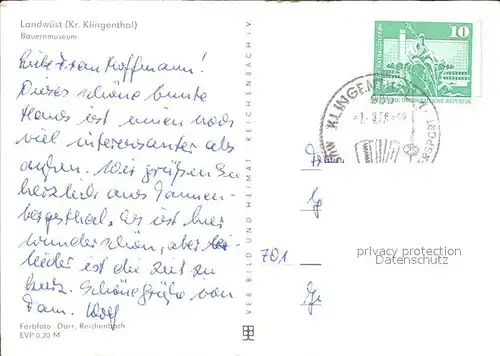 Landwüst (Kr. Klingenthal)
Bauernmuseum
Liebe Frau Hoffmann!
Dieses schöne bunte
Haus ist innen noch
viel interessanter als
außen. Wir grüßen Sie
herzlich aus Tannen-
bergsthal. Es ist hier
wunderschön, aber
leider ist die Zeit zu
kurz. Schöne Grüße von
Fam. Wolf
Farbfoto: Darr, Reichenbach
EVP 0,20 M
VEB BILD UND HEIMAT REICHENBACH i.V.
10
KLINGENTHAL
701
privacy protection
Datenschutz